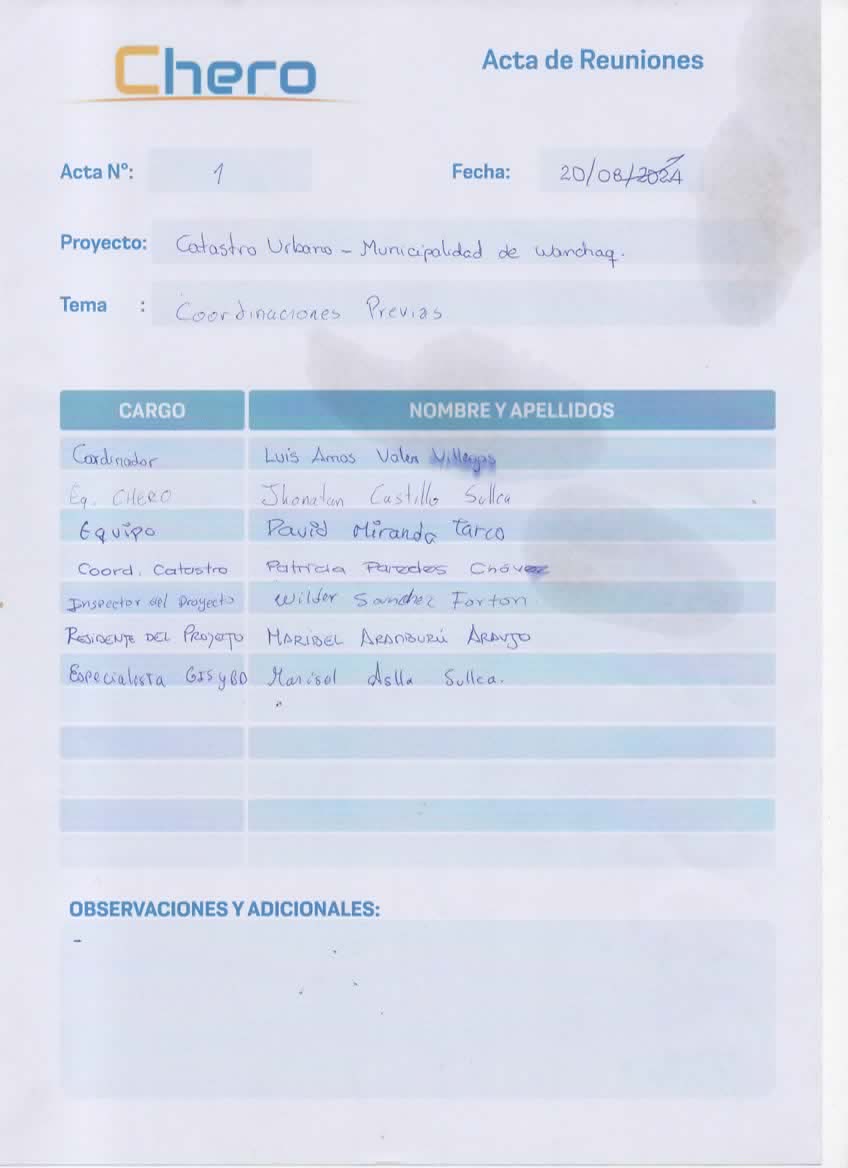 Chero
Acta de Reuniones
Acta Nº: 1
Fecha: 20/08/2024
Proyecto: Catastro Urbano - Municipalidad de Wanchaq.
Tema : Coordinaciones Previas
CARGO NOMBRE Y APELLIDOS
Cordinador Luis Amos Valer Villegas
Eq. CHERO Jhonatan Castillo Sullca
Equipo David Miranda Tarco
Coord. Catastro Patricia Paredes Chávez
Inspector del Proyecto Wilder Sanchez Forton
RESIDENTE DEL PROYECTO MARIBEL ARANBURÚ ARAUJO
Especialista GIS y BD Marisol Aslla Sullca.
OBSERVACIONES Y ADICIONALES:
-